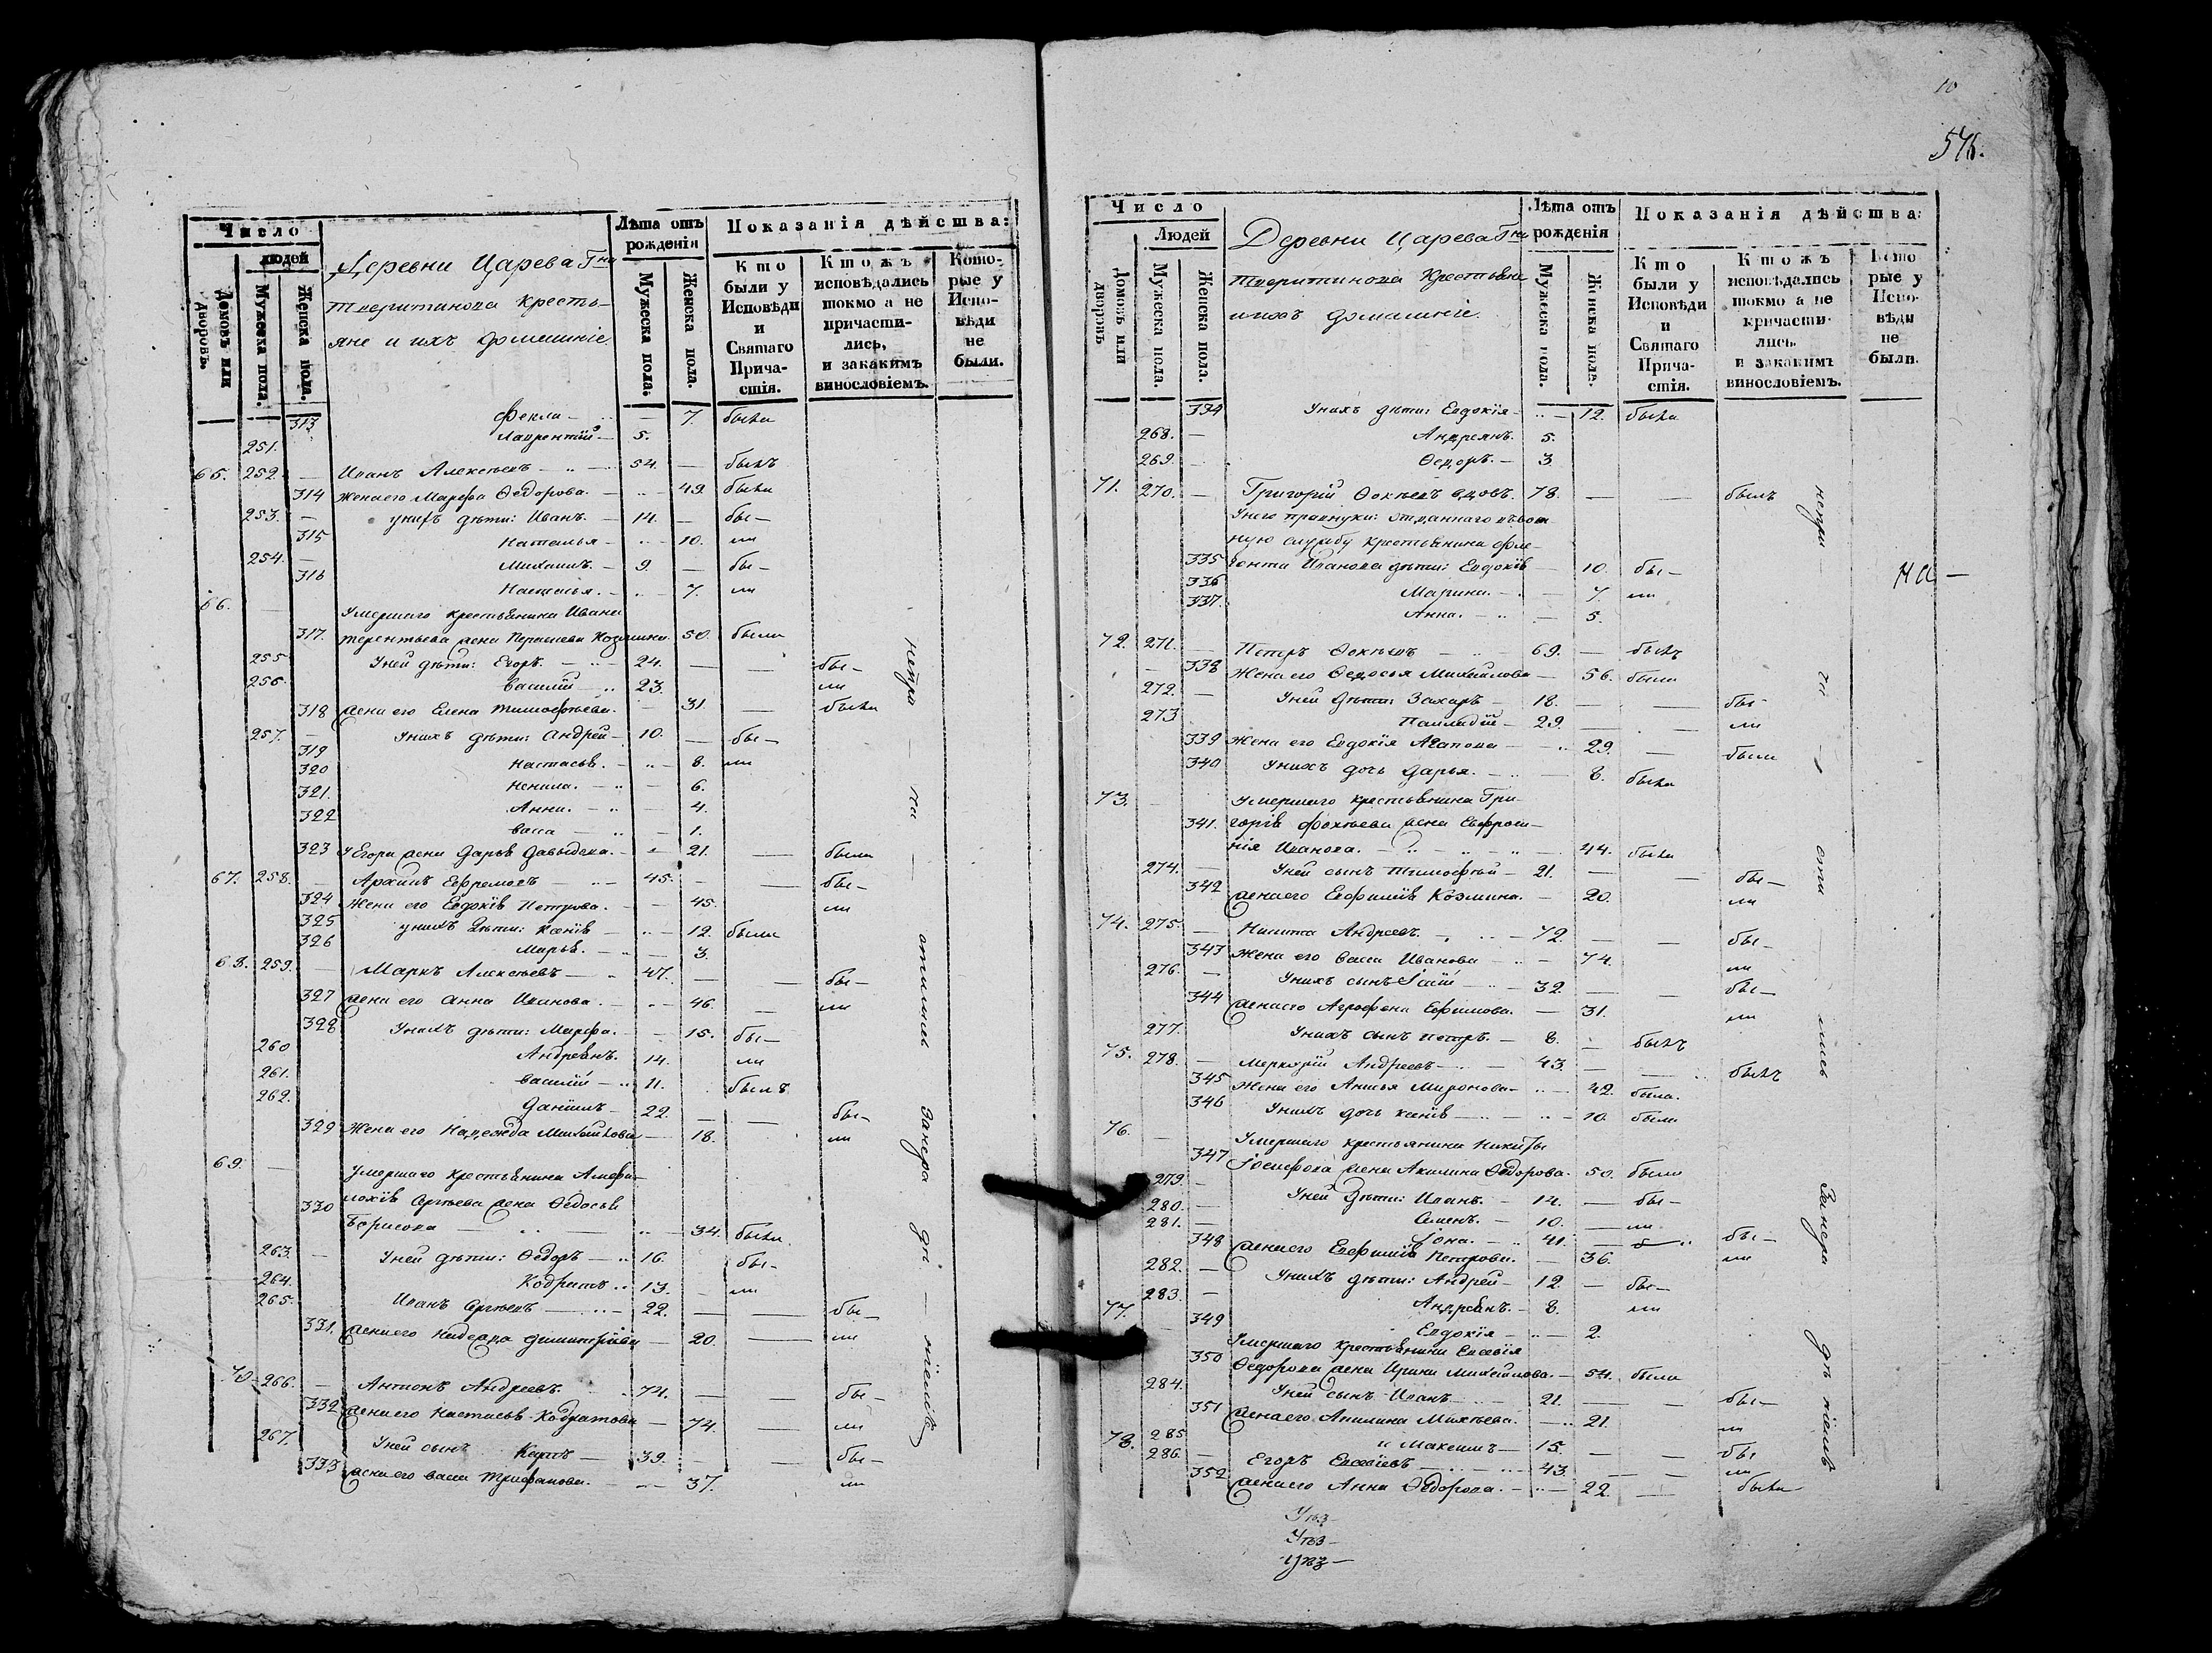 Число
Людей
Домовъ или дворовъ.
Мужеска пола.
Женска пола.
Деревни Царева Гна
Тверитинова кресть-
яне и ихъ домашніе.
Лѣта отъ рожденія
Мужеска пола.
Женска пола.
Показанія дѣйства:
Кто были у Исповѣди и Святаго Причастія.
Ктожъ исповѣдались токмо а не причасти-лись, и закакимъ винословіемъ.
Кото-рые у Испо-вѣди не были.
313 Фекла — 7. была
251. Лаврентій — 5.
65. 252. — Иванъ Алексѣевъ — 54. — былъ
314 жена его Марфа Ѳедорова. — 49. была
253. — у нихъ дѣти: Иванъ. — 14. — бы—
315 Наталья — 10. ли
254. — Михаилъ. — 9. — бы—
316 Настасья. — 7. ли
66. — Умершаго крестьянина Ивана
317. Терентьева жена Козмина. 50. были
255 У ней дѣти: Егоръ. — 24. — — бы—
256. Василій — 23. ли
318 жена его Елена Тимофѣева. — 31. — была
257. — У нихъ дѣти: Андрей — 10. — бы—
319 Настасья. — 8. ли
320 Ненила. — 6.
321. Анна. — 4.
322 Васса — 1.
323 У Егора жена Дарья Давыдова. — 21. — была
67. 258. — Архипъ Ефремовъ — 45. — — бы—
324 Жена его Евдокія Петрова. — 45. ли
325 у нихъ дѣти: Ксенія — 12. были
326 Марья. — 3.
68. 259. — Маркъ Алексѣевъ — 47. — — бы—
327 жена его Анна Иванова. — 46. — ли
328 У нихъ дѣти: Марфа. — 15. бы—
260 Андреянъ. 14. ли
261. Василій — 11. былъ
262. Даніилъ — 22. — — бы—
329 Жена его Надежда Михайлова — 18. ли
69. — Умершаго крестьянина Амфи-
330 лохія Сергѣева жена Ѳедосья
Борисова — 34. была
263. — У ней дѣти: Ѳедоръ — 16. бы-
264. Кодратъ 13. — ли
265. Иванъ Сергѣевъ — 22. — — бы—
331. жена его Надежда Димитріева — 20. — ли
70. 266. — Антонъ Андреевъ. 74. — — бы—
332 жена его Настасья Кодратова — 74. — ли
267. У ней сынъ Карпъ — 39. — — бы—
333 жена его Васса Трифанова. — 37. ли
10
Число
Людей
Домовъ или дворовъ
Мужеска пола.
Женска пола.
Деревни Царева Гна
Тверитинова Крестьяне
и ихъ домашніе.
Лѣта отъ рожденія
Мужеска пола.
Женска пола.
Показанія дѣйства:
Кто были у Исповѣди и Святаго Прича-стія.
Ктожъ исповѣдались токмо а не причасти-лись. и закакимъ винословіемъ.
Кото-рые у Испо-вѣди не были.
334 У нихъ дѣти: Евдокія — 12. была
268. — Андреянъ. 5.
269. — Ѳедоръ. — 3.
71. 270. — Григорій Ѳокѣевъ вдовъ. 78. — — былъ
У него правнуки: отданнаго въ воен-
ную службу крестьянина
335 Иванова дѣти: Евдокія — 10. бы—
336 Марина. — 7. ли
337. Анна. — 5.
72. 271. — Петръ Ѳокѣевъ — 69. — былъ
338 Жена его Ѳедосья Михайлова — 56. была
272. — У ней дѣти: Захаръ — 18. — — бы—
273 Палладій — 29. — — ли
339 Жена его Евдокія Агапова — 29. — была
340 У нихъ дочь Дарья. — 8. была
73. — Умершаго крестьянина Гри-
341. горія Фокѣева жена Евфроси-
нія Иванова. — 44. была
274. — У ней сынъ Тимофей — 21. — — бы—
342 жена его Евфимія Козмина. — 20. ли
74. 275. — Никита Андреевъ. — 72. — — бы—
343 Жена его Васса Иванова — 74. ли
276. — У нихъ сынъ — 32. — — бы—
344 жена его Агрофена Ефимова. — 31. ли
277. У нихъ сынъ Петръ. — 8. — былъ
75. 278. — Меркурій Андреевъ — 43. — — былъ
345 Жена его Анисья Миронова — 42. была.
346 У нихъ дочь Ксенія — 10. была
76. — Умершаго крестьянина Никиты
347 Іосифова жена Акилина Ѳедорова. 50. была
279. — У ней дѣти: Иванъ. — 14. — бы—
280. — Семенъ. — 10. — ли
281. — Іона. — 41. — бы—
348 жена его Евфимія Петрова. — 36. ли
282. — У нихъ дѣти: Андрей — 12. — бы—
283. — Андреянъ. — 8. ли
349 Евдокія — 2.
77. Умершаго крестьянина Евсевія
350 Ѳедорова жена Ирина Михайлова. — 54. была
284. У ней сынъ Иванъ — 21. — — бы—
351 жена его Акилина Михѣева. — 21. ли
285 и Максимъ — 15. — — бы
78. 286. — Егоръ Евсевіевъ — 43. — — ли
352 жена его Анна Ѳедорова. — 22. — была